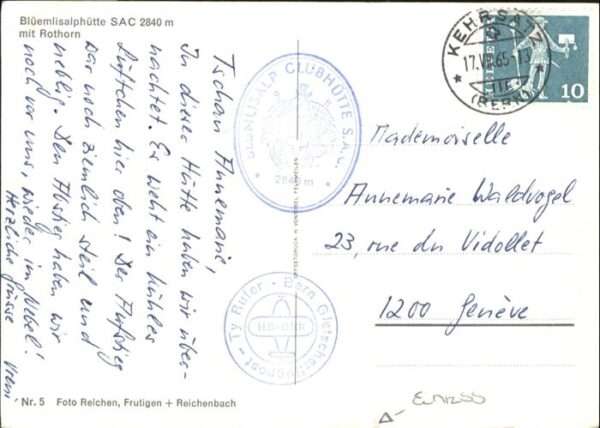 Blüemlisalphütte SAC 2840 m
mit Rothorn
Tschau Annemarie,
In dieser Hütte haben wir über-
nachtet. Es weht ein kühles
Lüftchen hier oben! Der Aufstieg
war noch ziemlich steil und
neblig. Den Abstieg haben wir
noch vor uns, wieder im Nebel!
Herzliche Grüsse
Vreni
BLÜEMLISALP CLUBHÜTTE S.A.C.
2840 m
KEHRSATZ
17.VII.65-13
(BERN)
10
Mademoiselle
Annemarie Waldvogel
23, rue du Vidollet
1200 Genève
Ty Rufer - Bern Gletscherflugpost
Nr. 5 Foto Reichen, Frutigen + Reichenbach